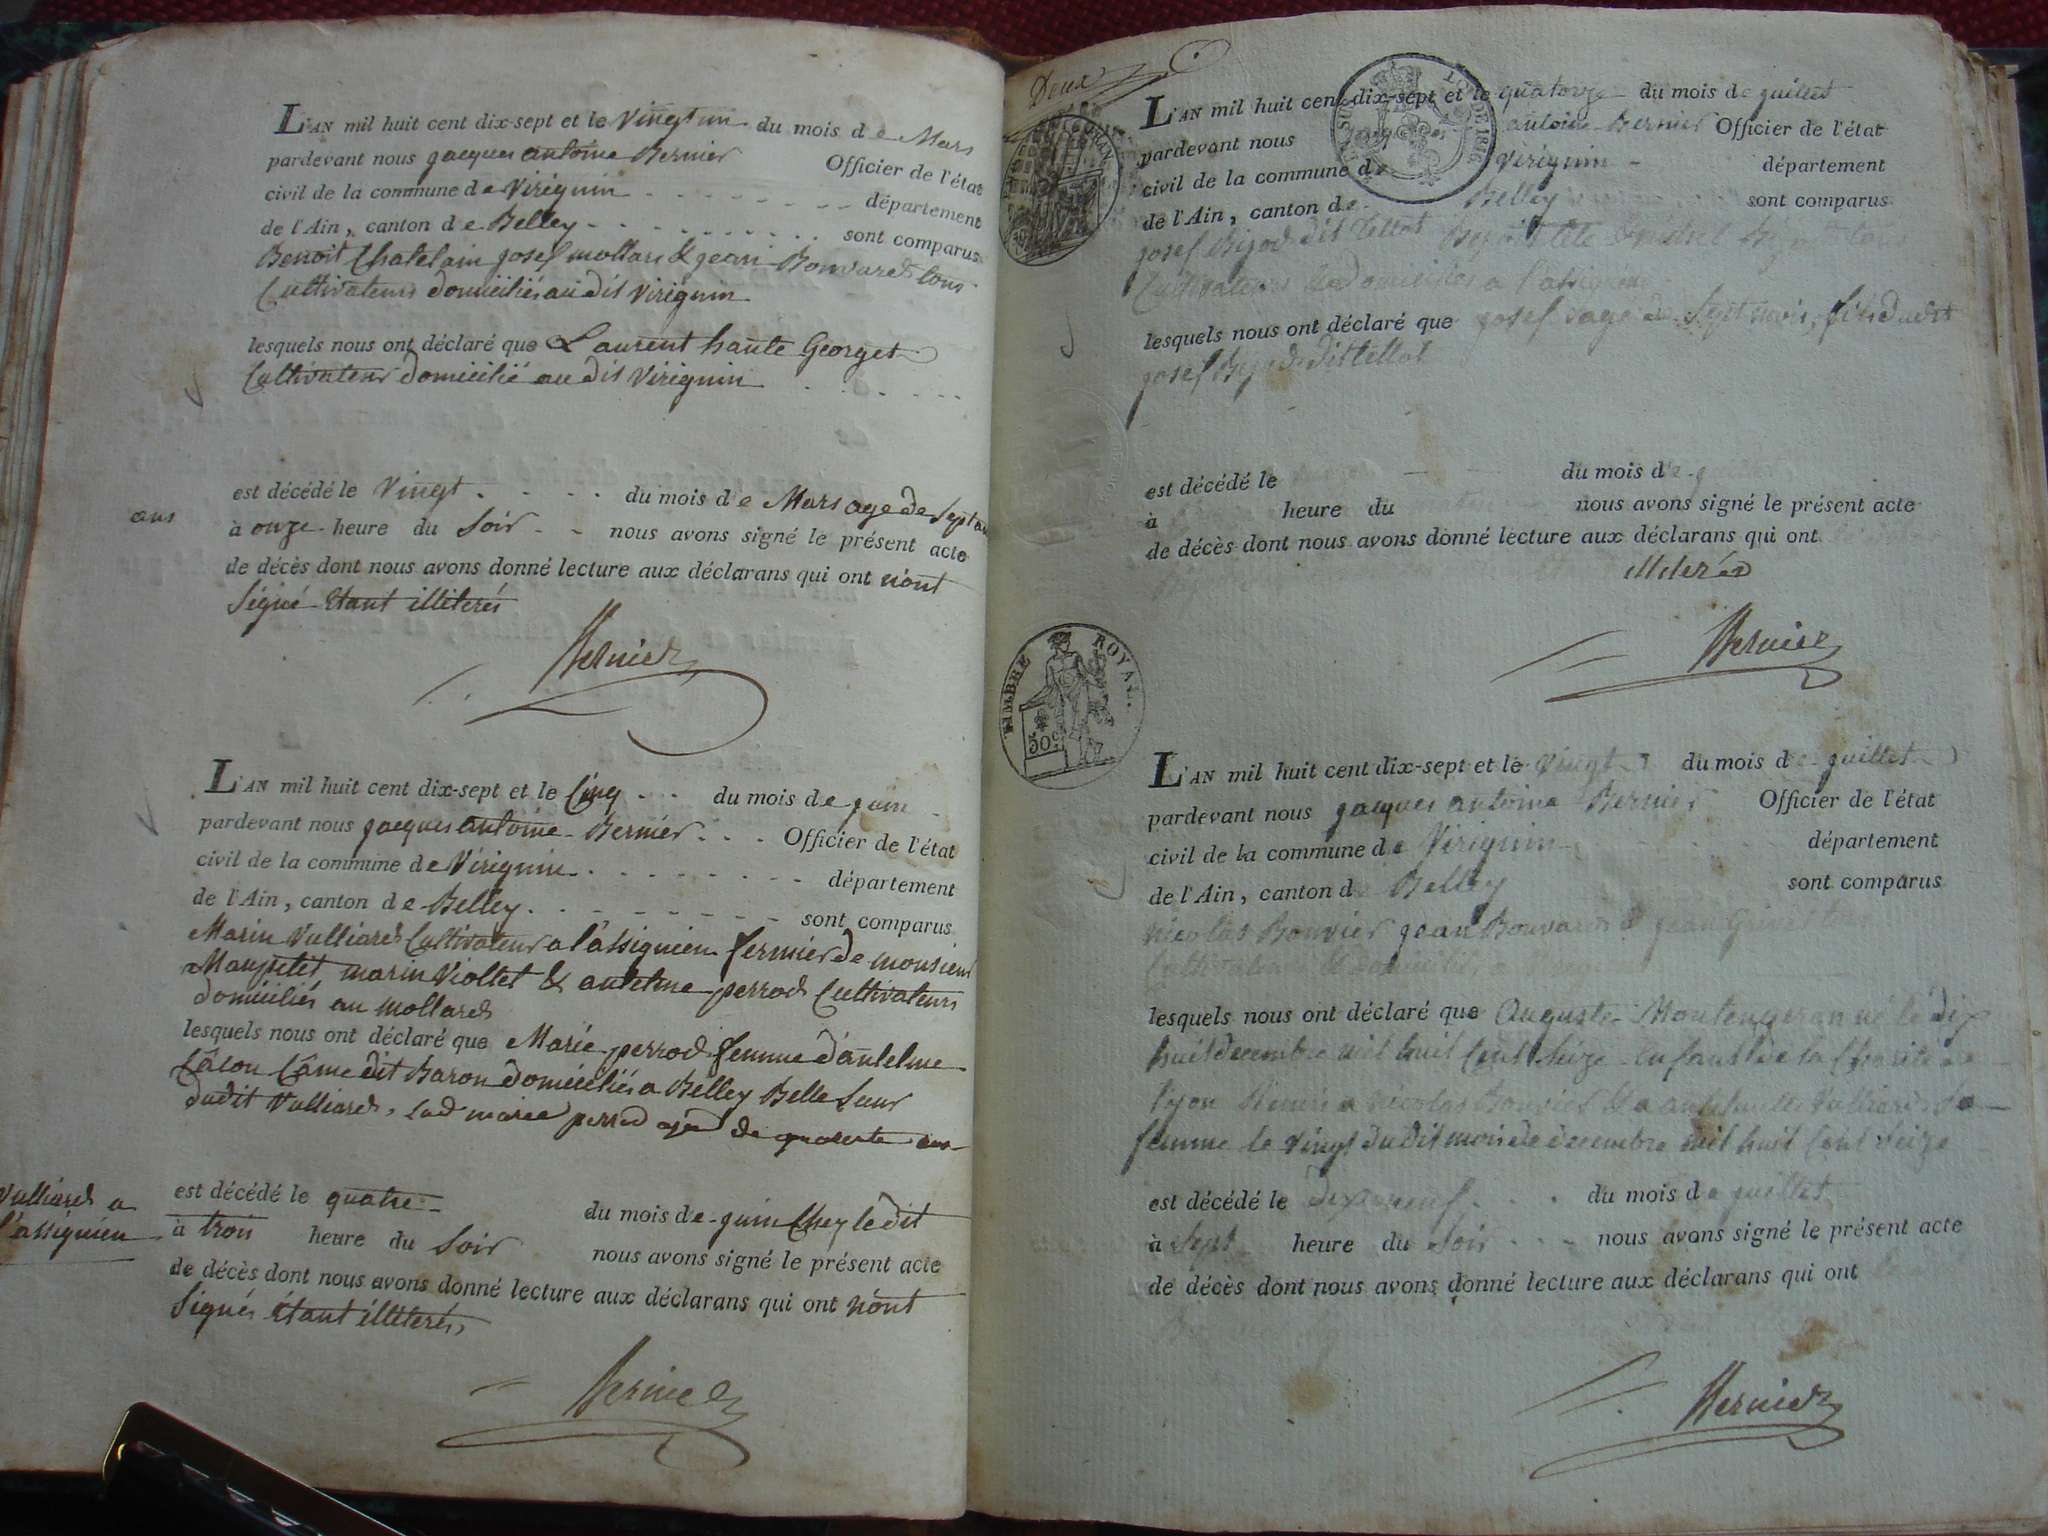 L'AN mil huit cent dix-sept et le Vingt un du mois de Mars
pardevant nous jacques antoine Bernier Officier de l'état
civil de la commune de Virignin département
de l'Ain, canton de Belley sont comparus
Benoit Chatelain josef mollard & jean Bouvard tous
Cultivateurs domiciliés au dit Virignin
lesquels nous ont déclaré que Laurent haute Georget
Cultivateur domicilié au dit Virignin
est décédé le Vingt du mois de Mars age de Sept an
ans
à onze heure du Soir nous avons signé le présent acte
de décès dont nous avons donné lecture aux déclarans qui ont n'ont
Signé Etant illiterés
Bernier
L'AN mil huit cent dix-sept et le Cinq du mois de juin
pardevant nous jacques antoine Bernier Officier de l'état
civil de la commune de Virignin département
de l'Ain, canton de Belley sont comparus
Marin Vulliard Cultivateur a l'assignieu fermier de monsieur
Maupetit marin Viollet & antelme perrod Cultivateurs
domiciliés au mollard
lesquels nous ont déclaré que Marie perrod femme d'antelme
Câme dit Baron domiciliés a Belley Belle Sœur
dudit Vulliard, marie perrod de quarente ans
est décédé le quatre du mois de juin Chez le dit
Vulliard a
l'assignieu
à trois heure du Soir nous avons signé le présent acte
de décès dont nous avons donné lecture aux déclarans qui ont n'ont
Signés étant illiterés,
Bernier
Deux
L'AN mil huit cent dix-sept et le quatorze du mois de juillet
pardevant nous jacques antoine Bernier Officier de l'état
civil de la commune de Virignin département
de l'Ain, canton de Belley sont comparus
josef Bijod dit tellot
Cultivateurs domiciliés a l'assignieu
lesquels nous ont déclaré que josef age de Sept mois, fils dudit
josef Bijod dit tellot
est décédé le du mois de
à heure du nous avons signé le présent acte
de décès dont nous avons donné lecture aux déclarans qui ont
illiterés
Bernier
TIMBRE ROYAL.
50c
L'AN mil huit cent dix-sept et le Vingt du mois de juillet
pardevant nous jacques antoine Bernier Officier de l'état
civil de la commune de Virignin département
de l'Ain, canton de Belley sont comparus
nicolas Bouvier jean Bouvard & jean
lesquels nous ont déclaré que Auguste né le dix
huit decembre mil huit Cent Seize enfant de la Charité de
lyon a nicolas Bouvier & a Vulliard Sa
femme le Vingt dudit mois de decembre mil huit Cent Seize
est décédé le dix neuf du mois de juillet
à Sept heure du Soir nous avons signé le présent acte
de décès dont nous avons donné lecture aux déclarans qui ont
Bernier